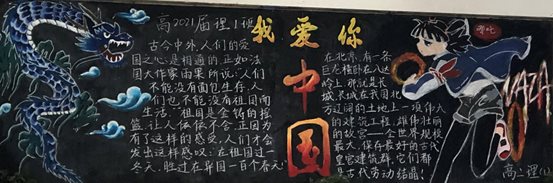 高2021届理1班
我爱你
中国
古今中外,人们的爱
国之心是相通的,正如法
国大作家雨果所说:"人们
不能没有面包生存,人
们也不能没有祖国而
生活。"祖国是金锅的摇
篮,让人依依不舍,正因为
有了这样的感受,人们才会
发出这样感叹:在祖国过一
冬天,胜过在异国一百个春天!
在北京,有一条
巨龙横卧在八达
岭上,那就是长
城,长城在我国北
方辽阔的土地上一项伟大
的建筑工程,雄伟壮丽
的故宫——全世界规模
最大、保存最好的古代
皇宫建筑群,它们都
是古代劳动结晶!
哪吒
高二理(1)